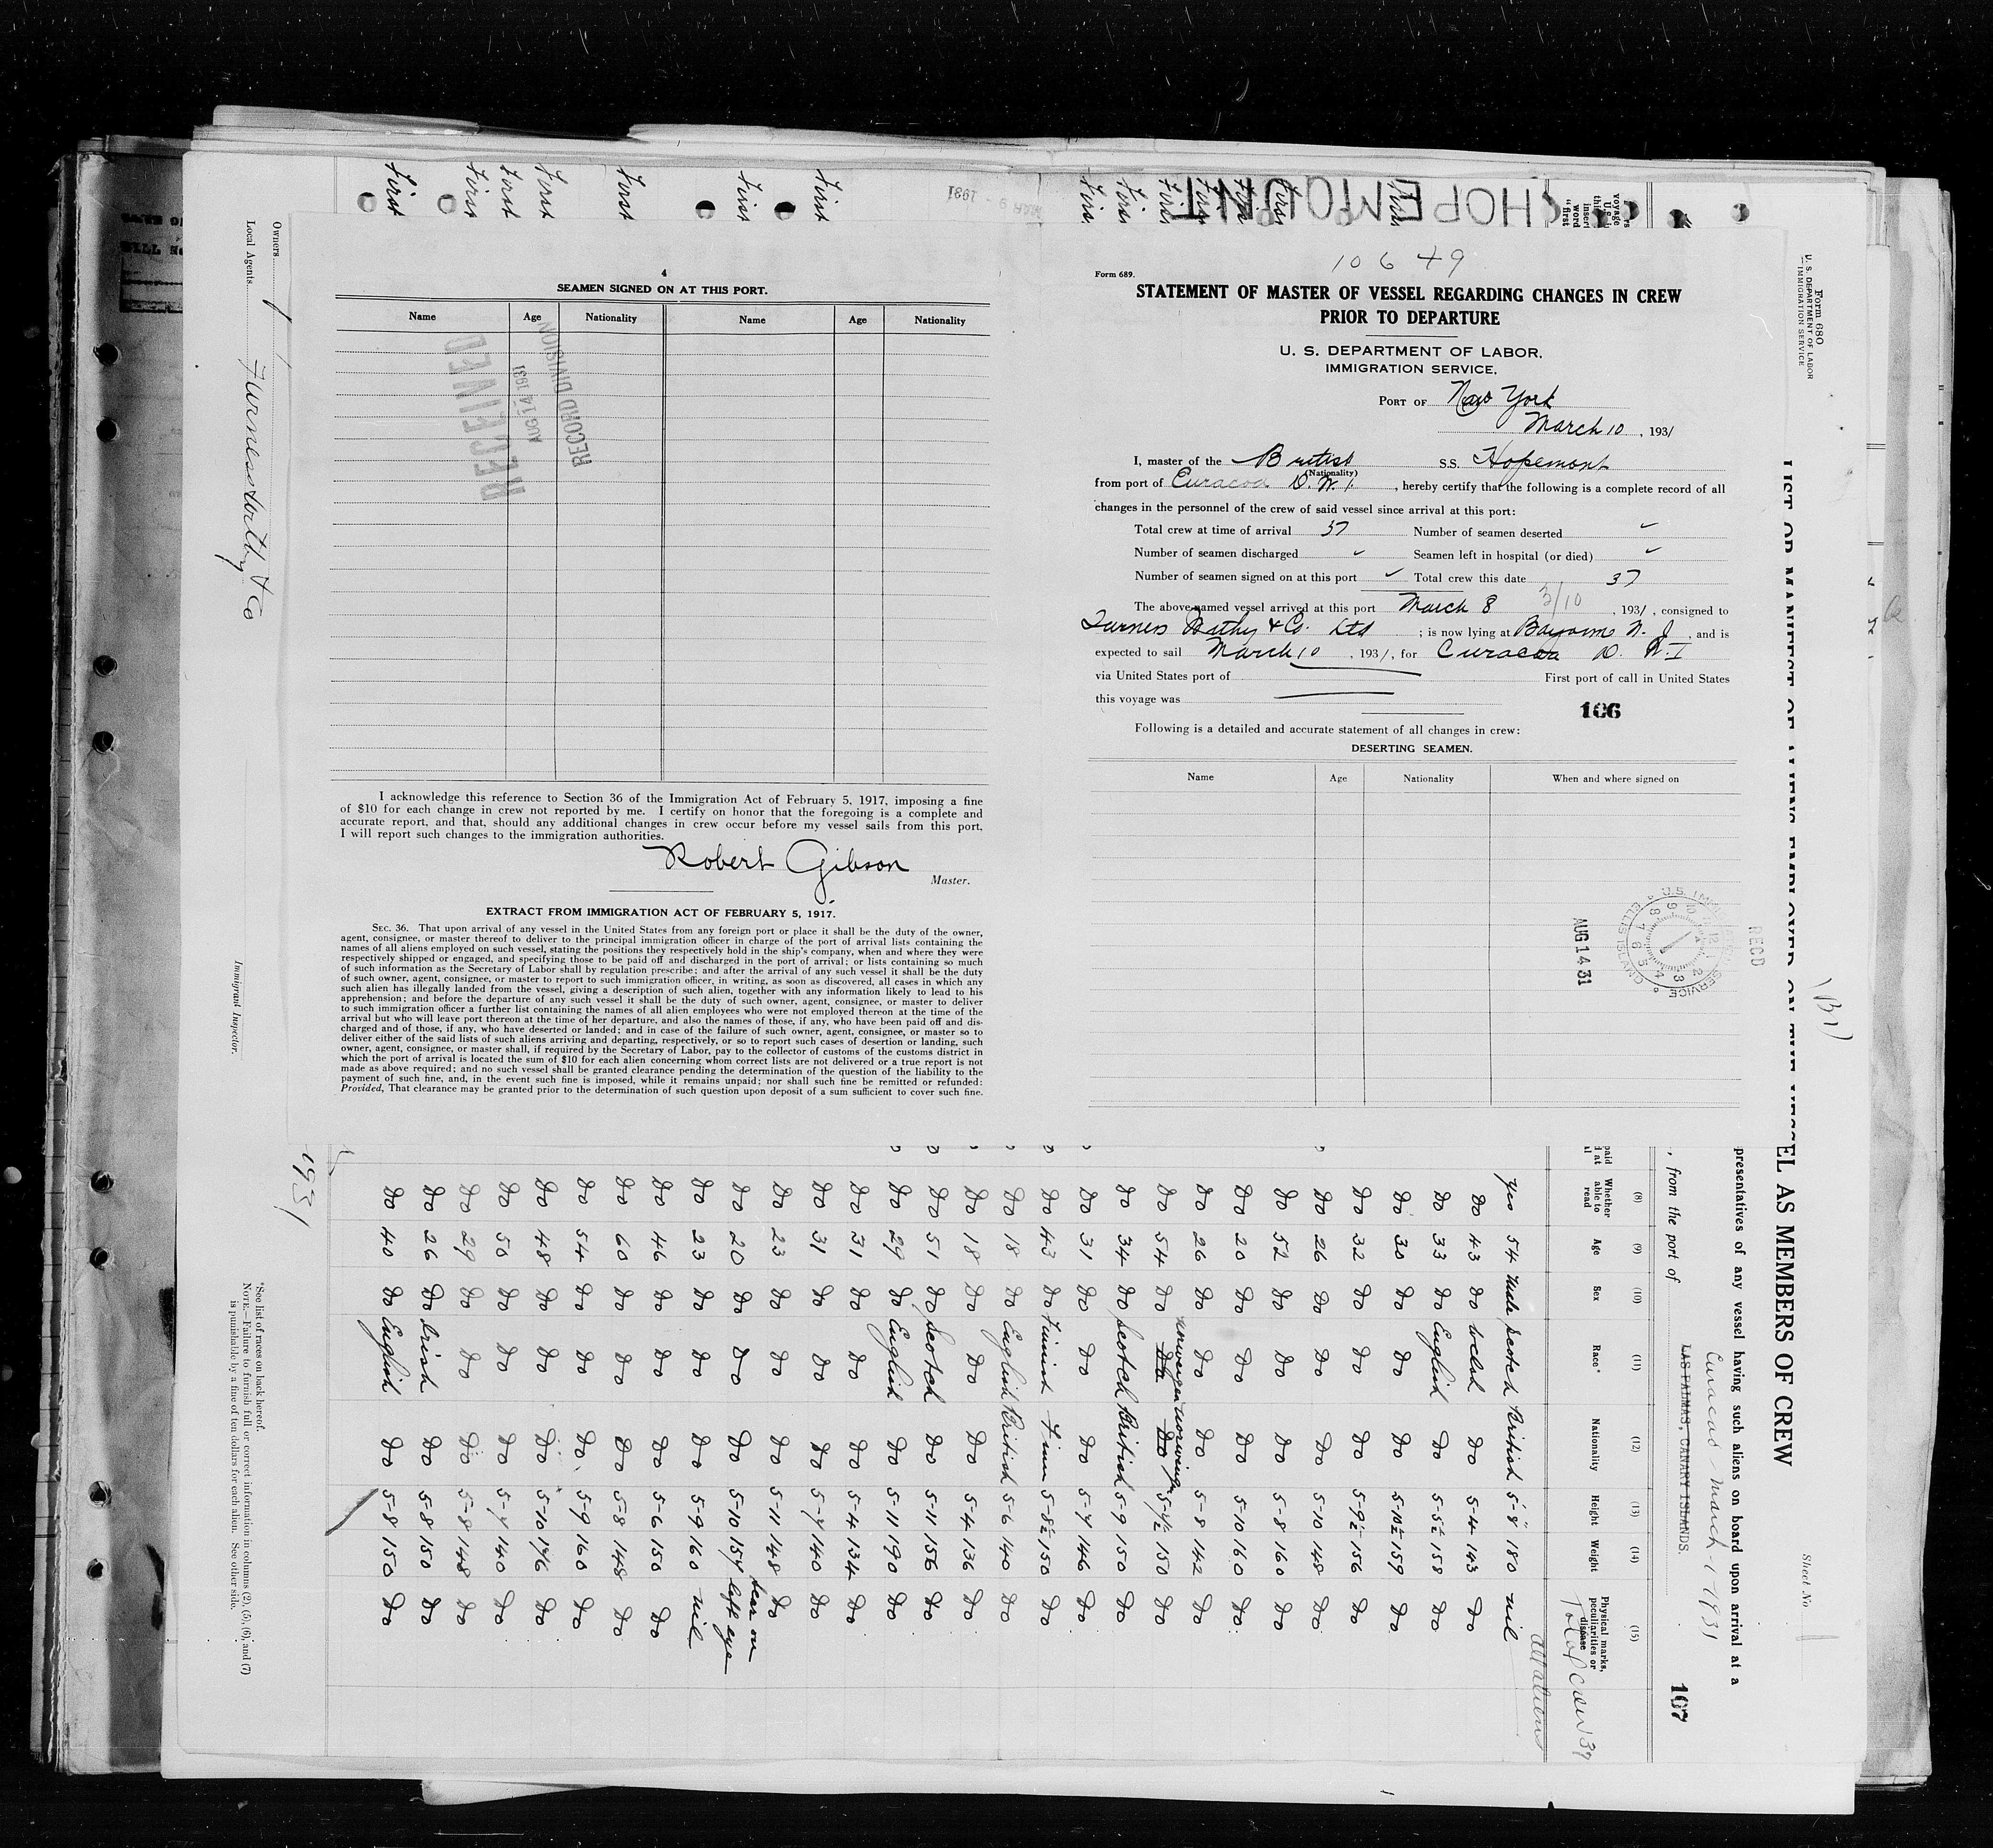 10649
Form 689.
STATEMENT OF MASTER OF VESSEL REGARDING CHANGES IN CREW
PRIOR TO DEPARTURE
U. S. DEPARTMENT OF LABOR,
IMMIGRATION SERVICE,
PORT OF New York
March 10, 1931
I, master of the British S.S. Hopemont
(Nationality)
from port of Curacoa D.W.I., hereby certify that the following is a complete record of all
changes in the personnel of the crew of said vessel since arrival at this port:
Total crew at time of arrival 37 Number of seamen deserted
Number of seamen discharged Seamen left in hospital (or died)
Number of seamen signed on at this port Total crew this date 37
The above-named vessel arrived at this port March 8 3/10, 1931, consigned to
& Co. Ltd; is now lying at N. J, and is
expected to sail March 10, 1931, for Curacoa D. W.I
via United States port of First port of call in United States
this voyage was
106
Following is a detailed and accurate statement of all changes in crew:
DESERTING SEAMEN.
Name Age Nationality When and where signed on
AUG 14 31
REC'D
4
SEAMEN SIGNED ON AT THIS PORT.
Name Age Nationality Name Age Nationality
RECEIVED
AUG 14 1931
RECORD DIVISION
I acknowledge this reference to Section 36 of the Immigration Act of February 5, 1917, imposing a fine
of $10 for each change in crew not reported by me. I certify on honor that the foregoing is a complete and
accurate report, and that, should any additional changes in crew occur before my vessel sails from this port,
I will report such changes to the immigration authorities.
Robert Gibson
Master.
EXTRACT FROM IMMIGRATION ACT OF FEBRUARY 5, 1917.
SEC. 36. That upon arrival of any vessel in the United States from any foreign port or place it shall be the duty of the owner,
agent, consignee, or master thereof to deliver to the principal immigration officer in charge of the port of arrival lists containing the
names of all aliens employed on such vessel, stating the positions they respectively hold in the ship's company, when and where they were
respectively shipped or engaged, and specifying those to be paid off and discharged in the port of arrival; or lists containing so much
of such information as the Secretary of Labor shall by regulation prescribe; and after the arrival of any such vessel it shall be the duty
of such owner, agent, consignee, or master to report to such immigration officer, in writing, as soon as discovered, all cases in which any
such alien has illegally landed from the vessel, giving a description of such alien, together with any information likely to lead to his
apprehension; and before the departure of any such vessel it shall be the duty of such owner, agent, consignee, or master to deliver
to such immigration officer a further list containing the names of all alien employees who were not employed thereon at the time of the
arrival but who will leave port thereon at the time of her departure, and also the names of those, if any, who have been paid off and dis-
charged and of those, if any, who have deserted or landed; and in case of the failure of such owner, agent, consignee, or master so to
deliver either of the said lists of such aliens arriving and departing, respectively, or so to report such cases of desertion or landing, such
owner, agent, consignee, or master shall, if required by the Secretary of Labor, pay to the collector of customs of the customs district in
which the port of arrival is located the sum of $10 for each alien concerning whom correct lists are not delivered or a true report is not
made as above required; and no such vessel shall be granted clearance pending the determination of the question of the liability to the
payment of such fine, and, in the event such fine is imposed, while it remains unpaid; nor shall such fine be remitted or refunded:
Provided, That clearance may be granted prior to the determination of such question upon deposit of a sum sufficient to cover such fine.
HOPEMOUNT
MAR 9 - 1931
Form 680
U. S. DEPARTMENT OF LABOR
IMMIGRATION SERVICE
Sheet No 1
EL AS MEMBERS OF CREW
presentatives of any vessel having such aliens on board upon arrival at a
Curacao March 1 1931
, from the port of LAS PALMAS, CANARY ISLANDS.
107
(8) (9) (10) (11) (12) (13) (14) (15)
Whether able to read Age Sex Race* Nationality Height Weight Physical marks, peculiarities or disease
Total Crew 37
All aliens
yes 54 Male Scotch British 5-8 180 nil
Do 43 Do Welsh Do 5-4 143 Do
Do 33 Do English Do 5-5½ 158 Do
Do 30 Do Do Do 5-10½ 159 Do
Do 32 Do Do Do 5-9½ 156 Do
Do 26 Do Do Do 5-10 148 Do
Do 52 Do Do Do 5-8 160 Do
Do 20 Do Do Do 5-10 160 Do
Do 26 Do Do Do 5-8 142 Do
Do 54 Do Do Do 5-4½ 150 Do
Do 34 Do Scotch British 5-9 150 Do
Do 31 Do Do Do 5-7 146 Do
Do 43 Do Finnish Finn 5-8½ 150 Do
Do 18 Do English British 5-6 140 Do
Do 18 Do Do Do 5-4 136 Do
Do 51 Do Scotch Do 5-11 156 Do
Do 29 Do English Do 5-11 190 Do
Do 31 Do Do Do 5-4 134 Do
Do 31 Do Do Do 5-7 140 Do
Do 23 Do Do Do 5-11 148 Do
Do 20 Do Do Do 5-10 154 scar on left eye
Do 23 Do Do Do 5-9 160 nil
Do 46 Do Do Do 5-6 150 Do
Do 60 Do Do Do 5-8 148 Do
Do 54 Do Do Do 5-9 160 Do
Do 48 Do Do Do 5-10 146 Do
Do 50 Do Do Do 5-7 140 Do
Do 29 Do Do Do 5-8 148 Do
Do 26 Do Irish Do 5-8 150 Do
Do 40 Do English Do 5-8 150 Do
1931
Owners
Local Agents Furness Withy & Co
Immigrant Inspector.
*See list of races on back hereof.
NOTE.—Failure to furnish full or correct information in columns (2), (5), (6), and (7)
is punishable by a fine of ten dollars for each alien. See other side.